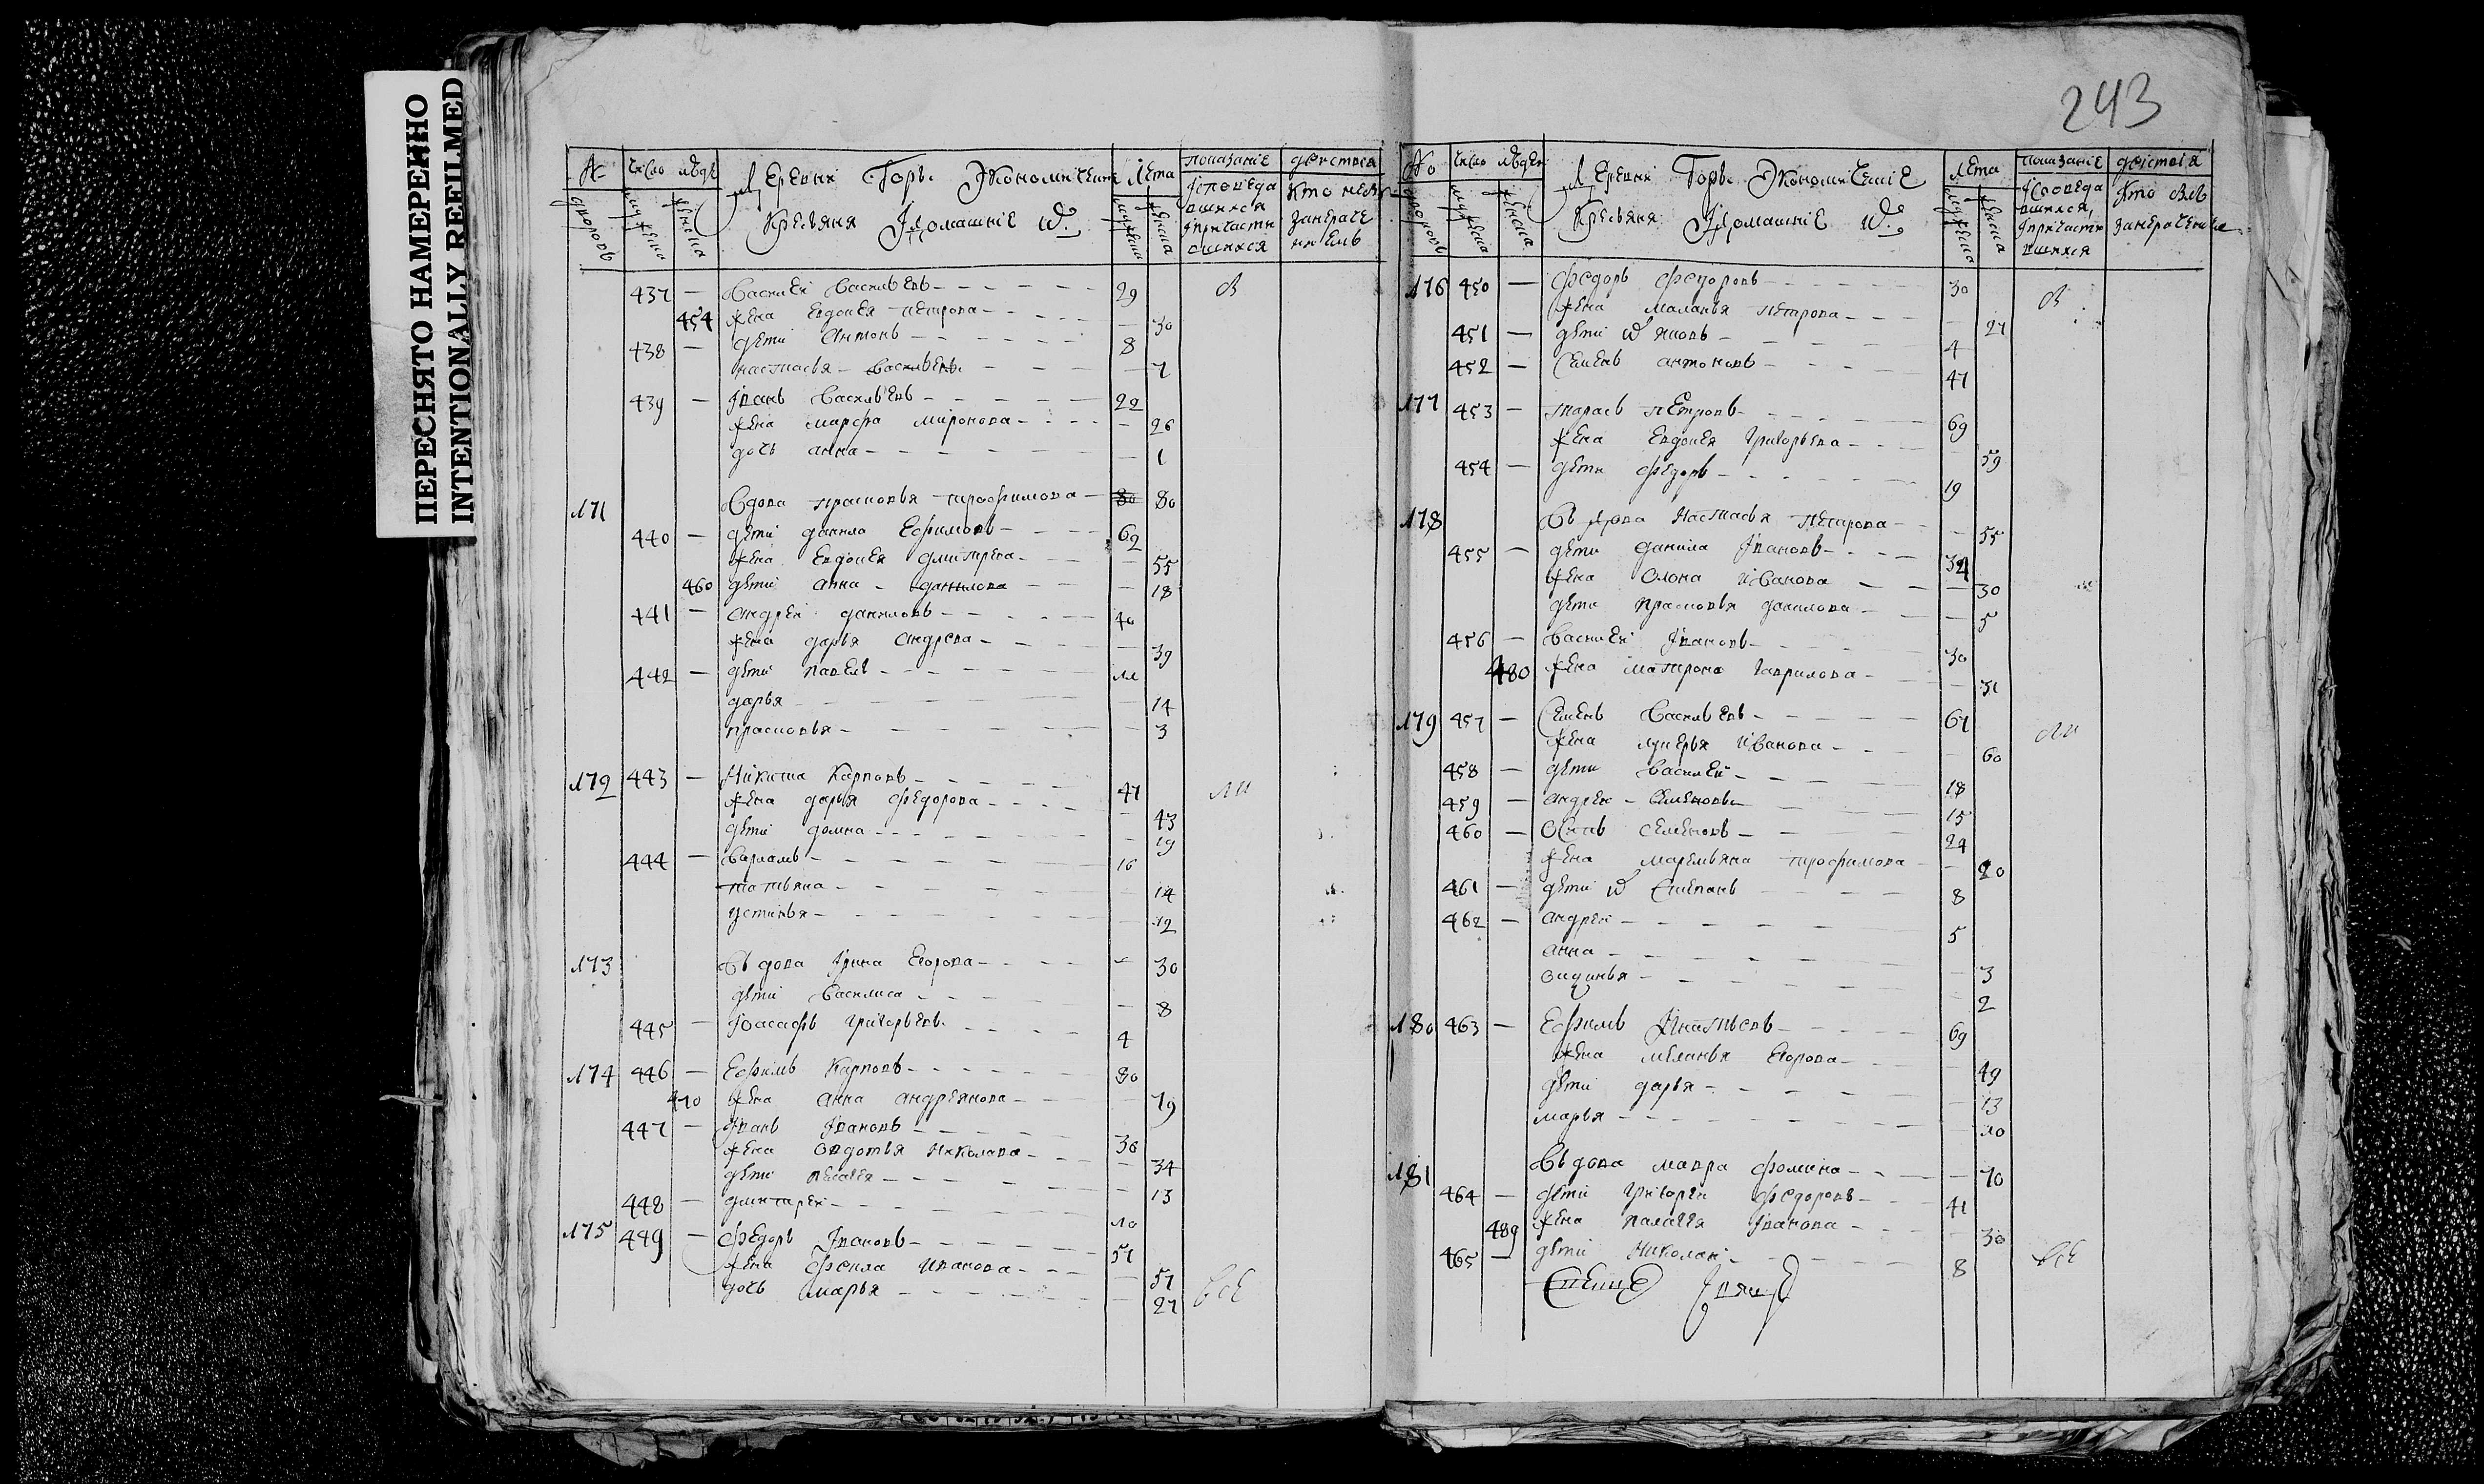 ПЕРЕСНЯТО НАМЕРЕННО
INTENTIONALLY REFILMED
243
№ число людей Деревни Горъ Экономические Лета показание действа
дворовъ мужеска женска Крестьяня Їдомашніе ихъ мужеска женска
437 — Василей Васильевъ 29 В
454 жена Евдокея Петрова — 30
438 — дети Антонъ 8
настасья — 7
439 — Іванъ Васильевъ 22
жена марфа миронова — 26
дочь анна — 1
171 Вдова прасковья трофимова 80
440 — дети данила Ефимовъ 62
жена Евдокея дмитрева — 55
460 дети анна — 18
441 — андрей даниловъ 40
жена дарья андрева — 39
442 — дети павелъ 11
дарья — 14
прасковья — 3
172 443 — Никита Карповъ 47
жена дарья федорова — 43
дети домна — 19
444 — варламъ 16
татьяна — 14
устинья — 12
173 Въдова Ірина Егорова — 30
дети василиса — 8
445 — Іоасафъ григорьевъ 4
174 446 — Ефимъ Карповъ 80
470 жена анна андреянова — 79
447 — Іванъ Івановъ 36
жена овдотья Николава — 34
дети пелагея — 13
448 — дмитрей 10
175 449 — федоръ Івановъ 57
жена фекла иванова — 57
дочь марья — 27 все
№ число людей Деревни Горъ Экономические лета показание действия
дворовъ мужеска женска Крестьяня Їдомашніе ихъ мужеска женска
176 450 — федоръ федоровъ 30 В
жена маланья петрова — 27
451 — дети ихъ яковъ 4
452 — Семенъ антоновъ 47
177 453 — тарасъ петровъ 69
жена Евдокея григорьева — 59
454 — дети федоръ 19
178 Въдова настасья петрова — 55
455 — дети данила Івановъ 34
жена олона иванова — 30
дети прасковья данилова — 5
456 — василей Івановъ 30
480 жена матрона гаврилова — 31
179 457 — Семенъ васильевъ 67
жена лукерья иванова — 60
458 — дети василей 18
459 — андрей семеновъ 15
460 — осипъ семеновъ 24
жена маремьяна трофимова — 20
461 — дети ихъ степанъ 8
462 — андрей 5
анна — 3
— 2
180 463 — Ефимъ Игнатьевъ 69
жена меланья Егорова — 49
дети дарья — 13
марья — 10
181 Въдова мавра фомина — 70
464 — дети григорей федоровъ 41
489 жена палагея Іванова — 30
465 — дети николай 8 все